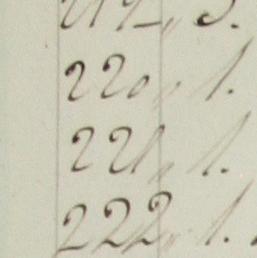 219 „ 3.
220 „ 1.
221 „ 1.
222 „ 1.